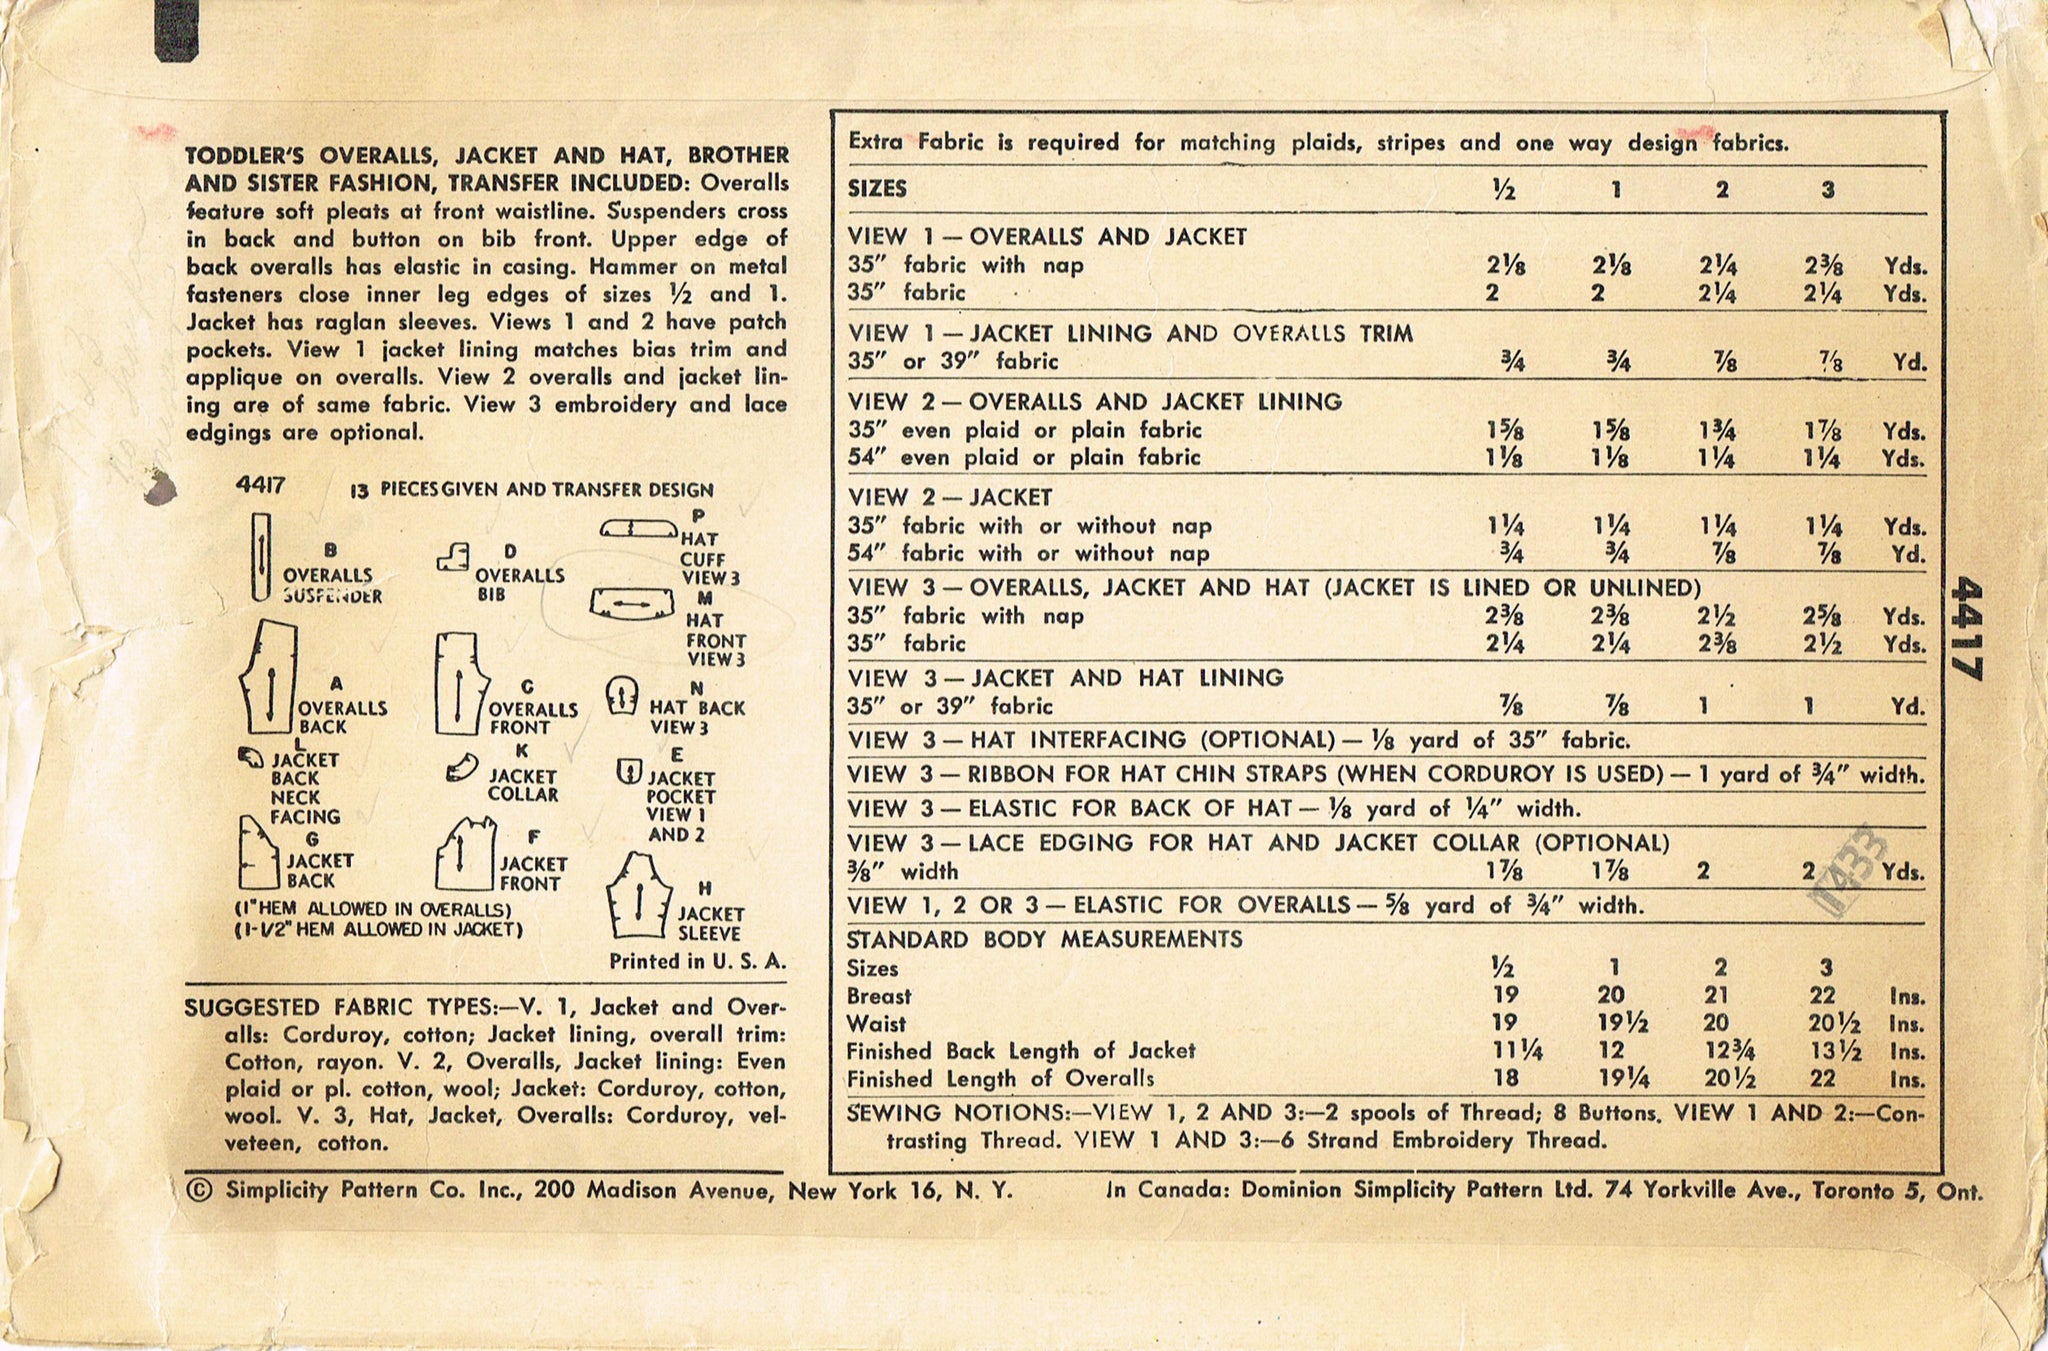 TODDLER'S OVERALLS, JACKET AND HAT, BROTHER
AND SISTER FASHION, TRANSFER INCLUDED: Overalls
feature soft pleats at front waistline. Suspenders cross
in back and button on bib front. Upper edge of
back overalls has elastic in casing. Hammer on metal
fasteners close inner leg edges of sizes ½ and 1.
Jacket has raglan sleeves. Views 1 and 2 have patch
pockets. View 1 jacket lining matches bias trim and
applique on overalls. View 2 overalls and jacket lin-
ing are of same fabric. View 3 embroidery and lace
edgings are optional.
4417 13 PIECES GIVEN AND TRANSFER DESIGN
B
OVERALLS
SUSPENDER
D
OVERALLS
BIB
P
HAT
CUFF
VIEW 3
M
HAT
FRONT
VIEW 3
A
OVERALLS
BACK
C
OVERALLS
FRONT
N
HAT BACK
VIEW 3
L
JACKET
BACK
NECK
FACING
K
JACKET
COLLAR
E
JACKET
POCKET
VIEW 1
AND 2
G
JACKET
BACK
F
JACKET
FRONT
H
JACKET
SLEEVE
(1" HEM ALLOWED IN OVERALLS)
(1-1/2" HEM ALLOWED IN JACKET)
Printed in U. S. A.
SUGGESTED FABRIC TYPES:—V. 1, Jacket and Over-
alls: Corduroy, cotton; Jacket lining, overall trim:
Cotton, rayon. V. 2, Overalls, Jacket lining: Even
plaid or pl. cotton, wool; Jacket: Corduroy, cotton,
wool. V. 3, Hat, Jacket, Overalls: Corduroy, vel-
veteen, cotton.
Extra Fabric is required for matching plaids, stripes and one way design fabrics.
SIZES ½ 1 2 3
VIEW 1 — OVERALLS AND JACKET
35" fabric with nap 2⅛ 2⅛ 2¼ 2⅜ Yds.
35" fabric 2 2 2¼ 2¼ Yds.
VIEW 1 — JACKET LINING AND OVERALLS TRIM
35" or 39" fabric ¾ ¾ ⅞ ⅞ Yd.
VIEW 2 — OVERALLS AND JACKET LINING
35" even plaid or plain fabric 1⅝ 1⅝ 1¾ 1⅞ Yds.
54" even plaid or plain fabric 1⅛ 1⅛ 1¼ 1¼ Yds.
VIEW 2 — JACKET
35" fabric with or without nap 1¼ 1¼ 1¼ 1¼ Yds.
54" fabric with or without nap ¾ ¾ ⅞ ⅞ Yd.
VIEW 3 — OVERALLS, JACKET AND HAT (JACKET IS LINED OR UNLINED)
35" fabric with nap 2⅜ 2⅜ 2½ 2⅝ Yds.
35" fabric 2¼ 2¼ 2⅜ 2½ Yds.
VIEW 3 — JACKET AND HAT LINING
35" or 39" fabric ⅞ ⅞ 1 1 Yd.
VIEW 3 — HAT INTERFACING (OPTIONAL) — ⅛ yard of 35" fabric.
VIEW 3 — RIBBON FOR HAT CHIN STRAPS (WHEN CORDUROY IS USED) — 1 yard of ¾" width.
VIEW 3 — ELASTIC FOR BACK OF HAT — ⅛ yard of ¼" width.
VIEW 3 — LACE EDGING FOR HAT AND JACKET COLLAR (OPTIONAL)
⅜" width 1⅞ 1⅞ 2 2 Yds.
VIEW 1, 2 OR 3 — ELASTIC FOR OVERALLS — ⅝ yard of ¾" width.
STANDARD BODY MEASUREMENTS
Sizes ½ 1 2 3
Breast 19 20 21 22 Ins.
Waist 19 19½ 20 20½ Ins.
Finished Back Length of Jacket 11¼ 12 12¾ 13½ Ins.
Finished Length of Overalls 18 19¼ 20½ 22 Ins.
SEWING NOTIONS:—VIEW 1, 2 AND 3:—2 spools of Thread; 8 Buttons. VIEW 1 AND 2:—Con-
trasting Thread. VIEW 1 AND 3:—6 Strand Embroidery Thread.
4417
© Simplicity Pattern Co. Inc., 200 Madison Avenue, New York 16, N. Y. In Canada: Dominion Simplicity Pattern Ltd. 74 Yorkville Ave., Toronto 5, Ont.